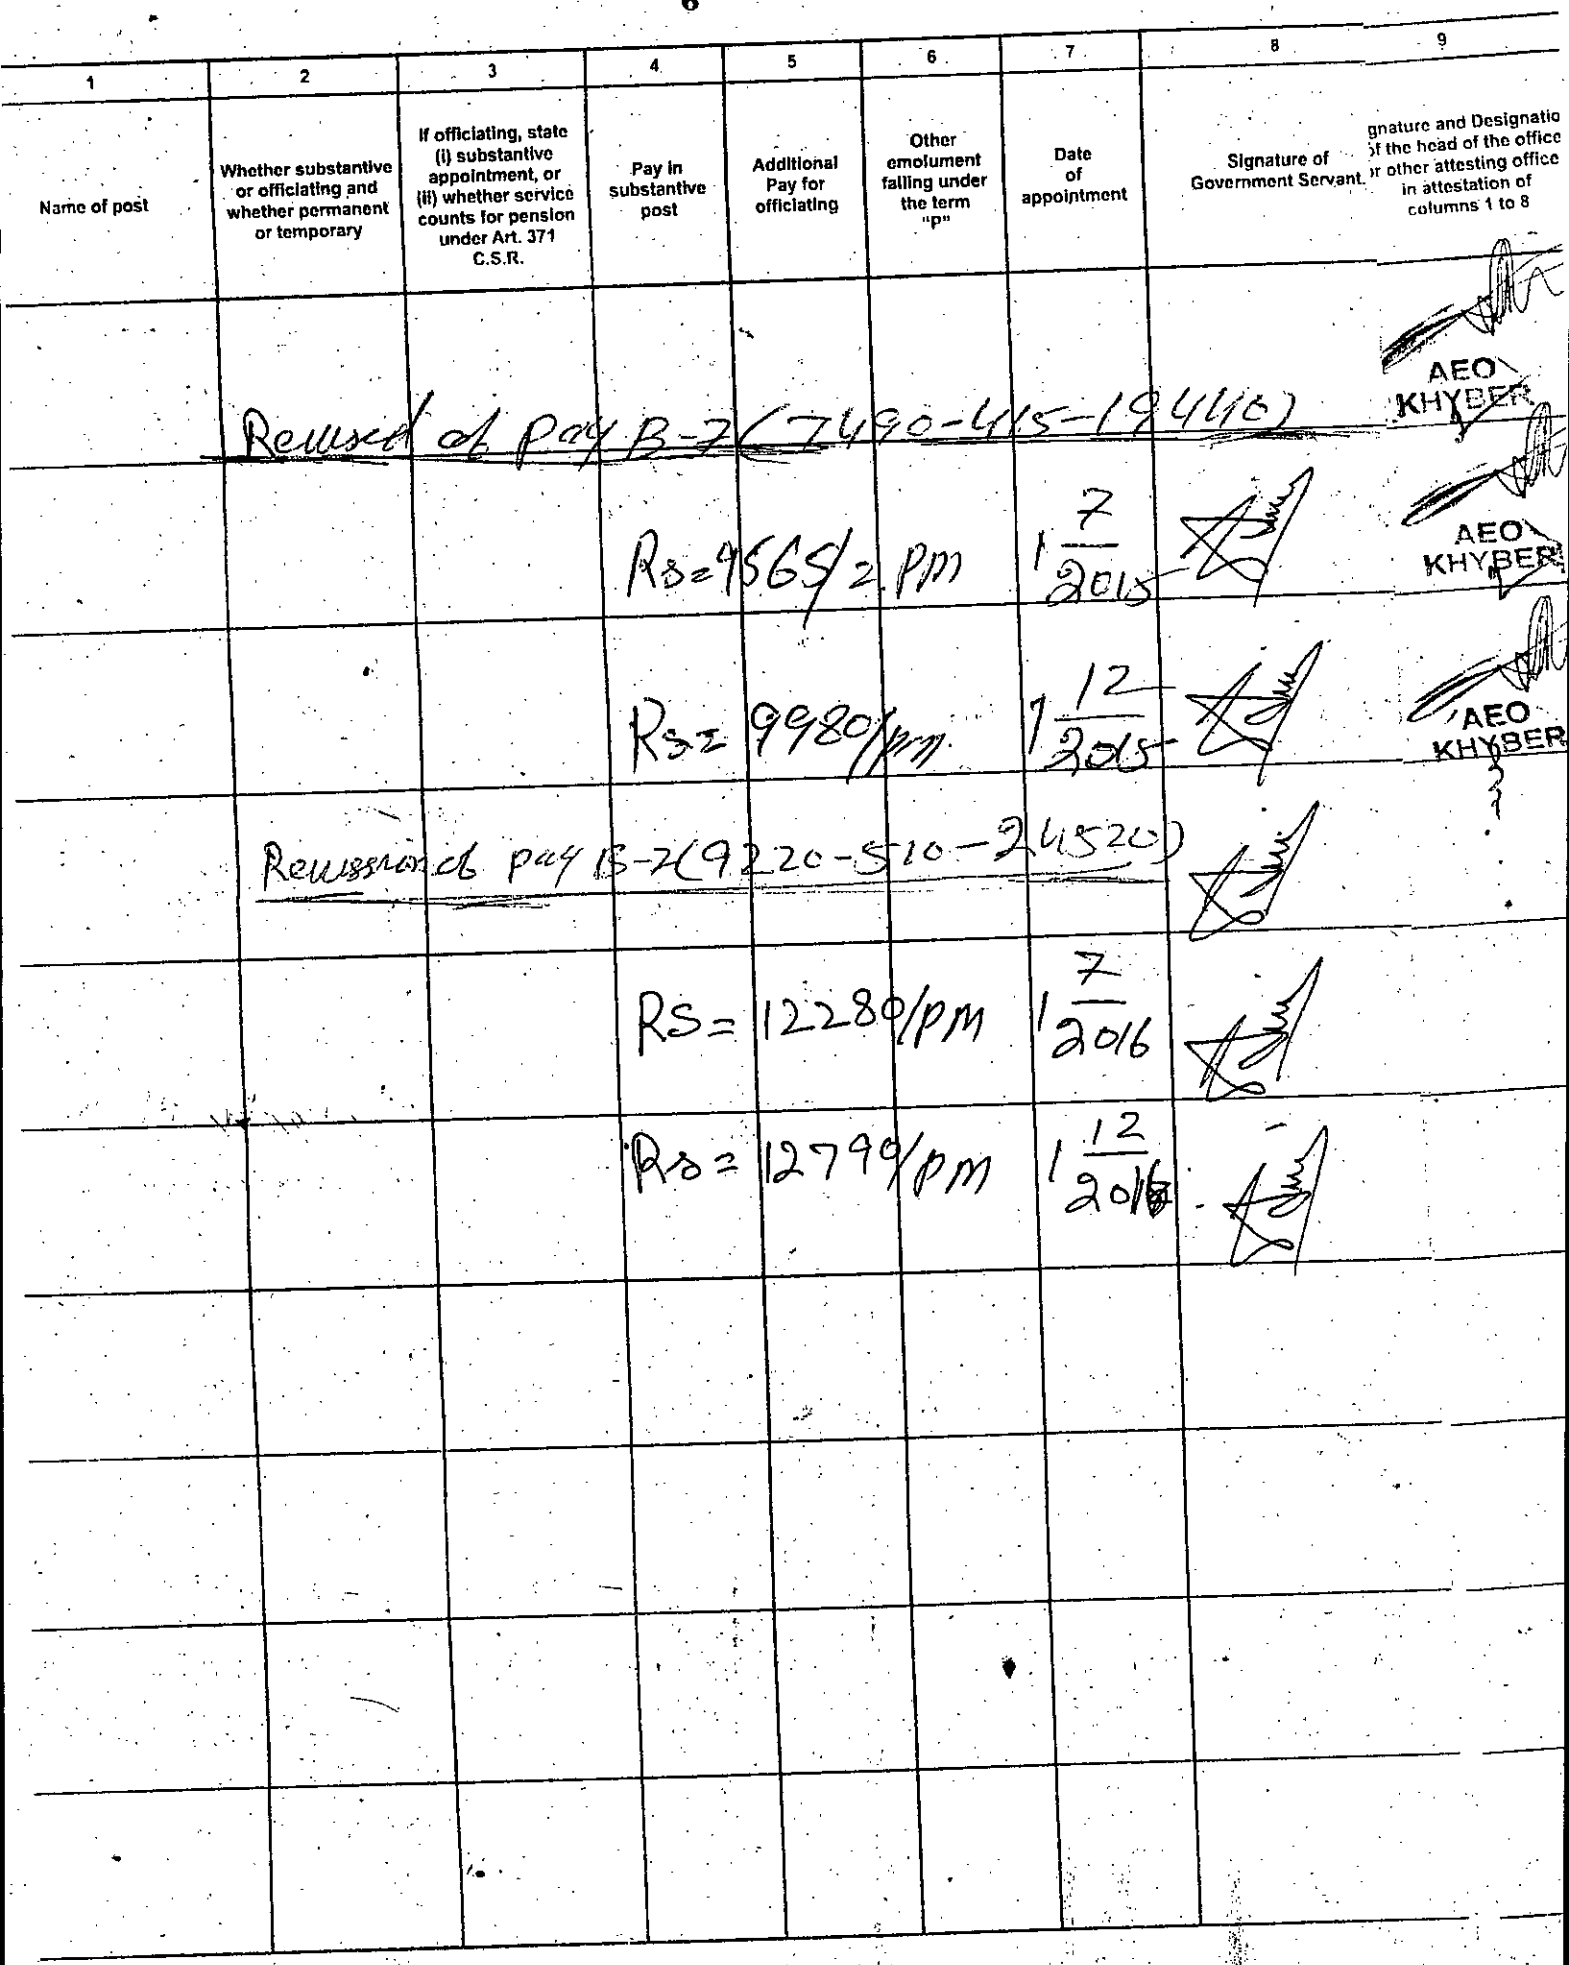 6
1 2 3 4 5 6 7 8 9
Name of post
Whether substantive
or officiating and
whether permanent
or temporary
If officiating, state
(i) substantive
appointment, or
(ii) whether service
counts for pension
under Art. 371
C.S.R.
Pay in
substantive
post
Additional
Pay for
officiating
Other
emolument
falling under
the term
"P"
Date
of
appointment
Signature of
Government Servant.
gnature and Designatio
of the head of the office
or other attesting office
in attestation of
columns 1 to 8
AEO
KHYBER
Revised of pay B-7 (7490-415-19440)
Rs=9565/= pm 1 7/2015
AEO
KHYBER
Rs= 9980/pm 1 12/2015
AEO
KHYBER
Revission of pay B-7(9220-510-24520)
RS= 12280/pm 1 7/2016
Rs= 12790/pm 1 12/2016